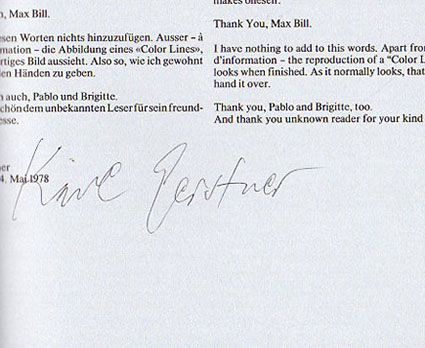 , Max Bill.
sen Worten nichts hinzuzufügen. Ausser – à
mation – die Abbildung eines «Color Lines»,
rtiges Bild aussieht. Also so, wie ich gewohnt
en Händen zu geben.
auch, Pablo und Brigitte.
chön dem unbekannten Leser für sein freund-
esse.
er
4. Mai 1978
makes oneself.
Thank You, Max Bill.
I have nothing to add to this words. Apart from
d'information – the reproduction of a "Color L
looks when finished. As it normally looks, that
hand it over.
Thank you, Pablo and Brigitte, too.
And thank you unknown reader for your kind
Karl Gerstner